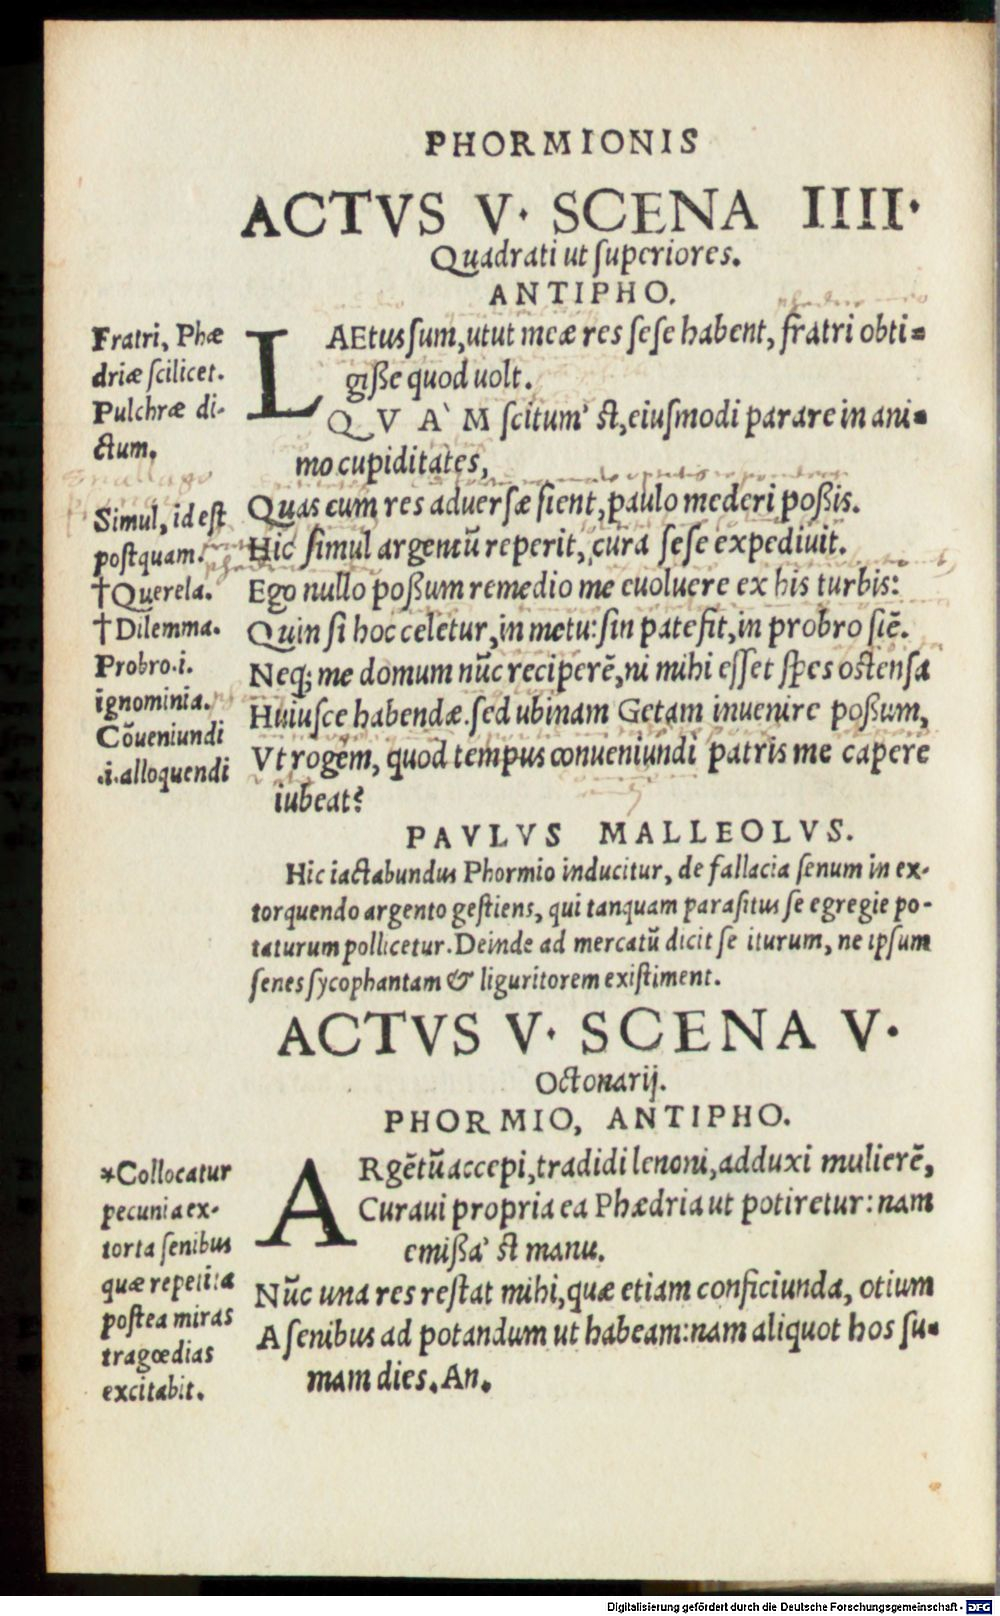 PHORMIONIS
ACTVS V. SCENA IIII.
Quadrati ut superiores.
ANTIPHO.
Fratri, Phæ
driæ scilicet.
Pulchræ di-
ctum.
Simul, id est
postquam.
†Querela.
†Dilemma.
Probro .i.
ignominia.
Cōueniundi
.i. alloquendi
LAEtus sum, utut meæ res sese habent, fratri obti-
gisse quod uolt.
QVÀM scitum' st, eiusmodi parare in ani-
mo cupiditates,
Quas cum res aduersæ sient, paulo mederi possis.
Hic simul argentū reperit, cura sese expediuit.
Ego nullo possum remedio me euoluere ex his turbis:
Quin si hoc celetur, in metu: sin patefit, in probro siē.
Neq; me domum nūc reciperē, ni mihi esset spes ostensa
Huiusce habendæ. sed ubinam Getam inuenire possum,
Vt rogem, quod tempus conueniundi patris me capere
iubeat?
PAVLVS MALLEOLVS.
Hic iactabundus Phormio inducitur, de fallacia senum in ex-
torquendo argento gestiens, qui tanquam parasitus se egregie po-
taturum pollicetur. Deinde ad mercatū dicit se iturum, ne ipsum
senes sycophantam & liguritorem existiment.
ACTVS V. SCENA V.
Octonarij.
PHORMIO, ANTIPHO.
*Collocatur
pecunia ex-
torta senibus
quæ repetita
postea miras
tragœdias
excitabit.
ARgētū accepi, tradidi lenoni, adduxi mulierē,
Curaui propria ea Phædria ut potiretur: nam
emissa' st manu.
Nūc una res restat mihi, quæ etiam conficiunda, otium
A senibus ad potandum ut habeam: nam aliquot hos su-
mam dies. An.
Digitalisierung gefördert durch die Deutsche Forschungsgemeinschaft - DFG